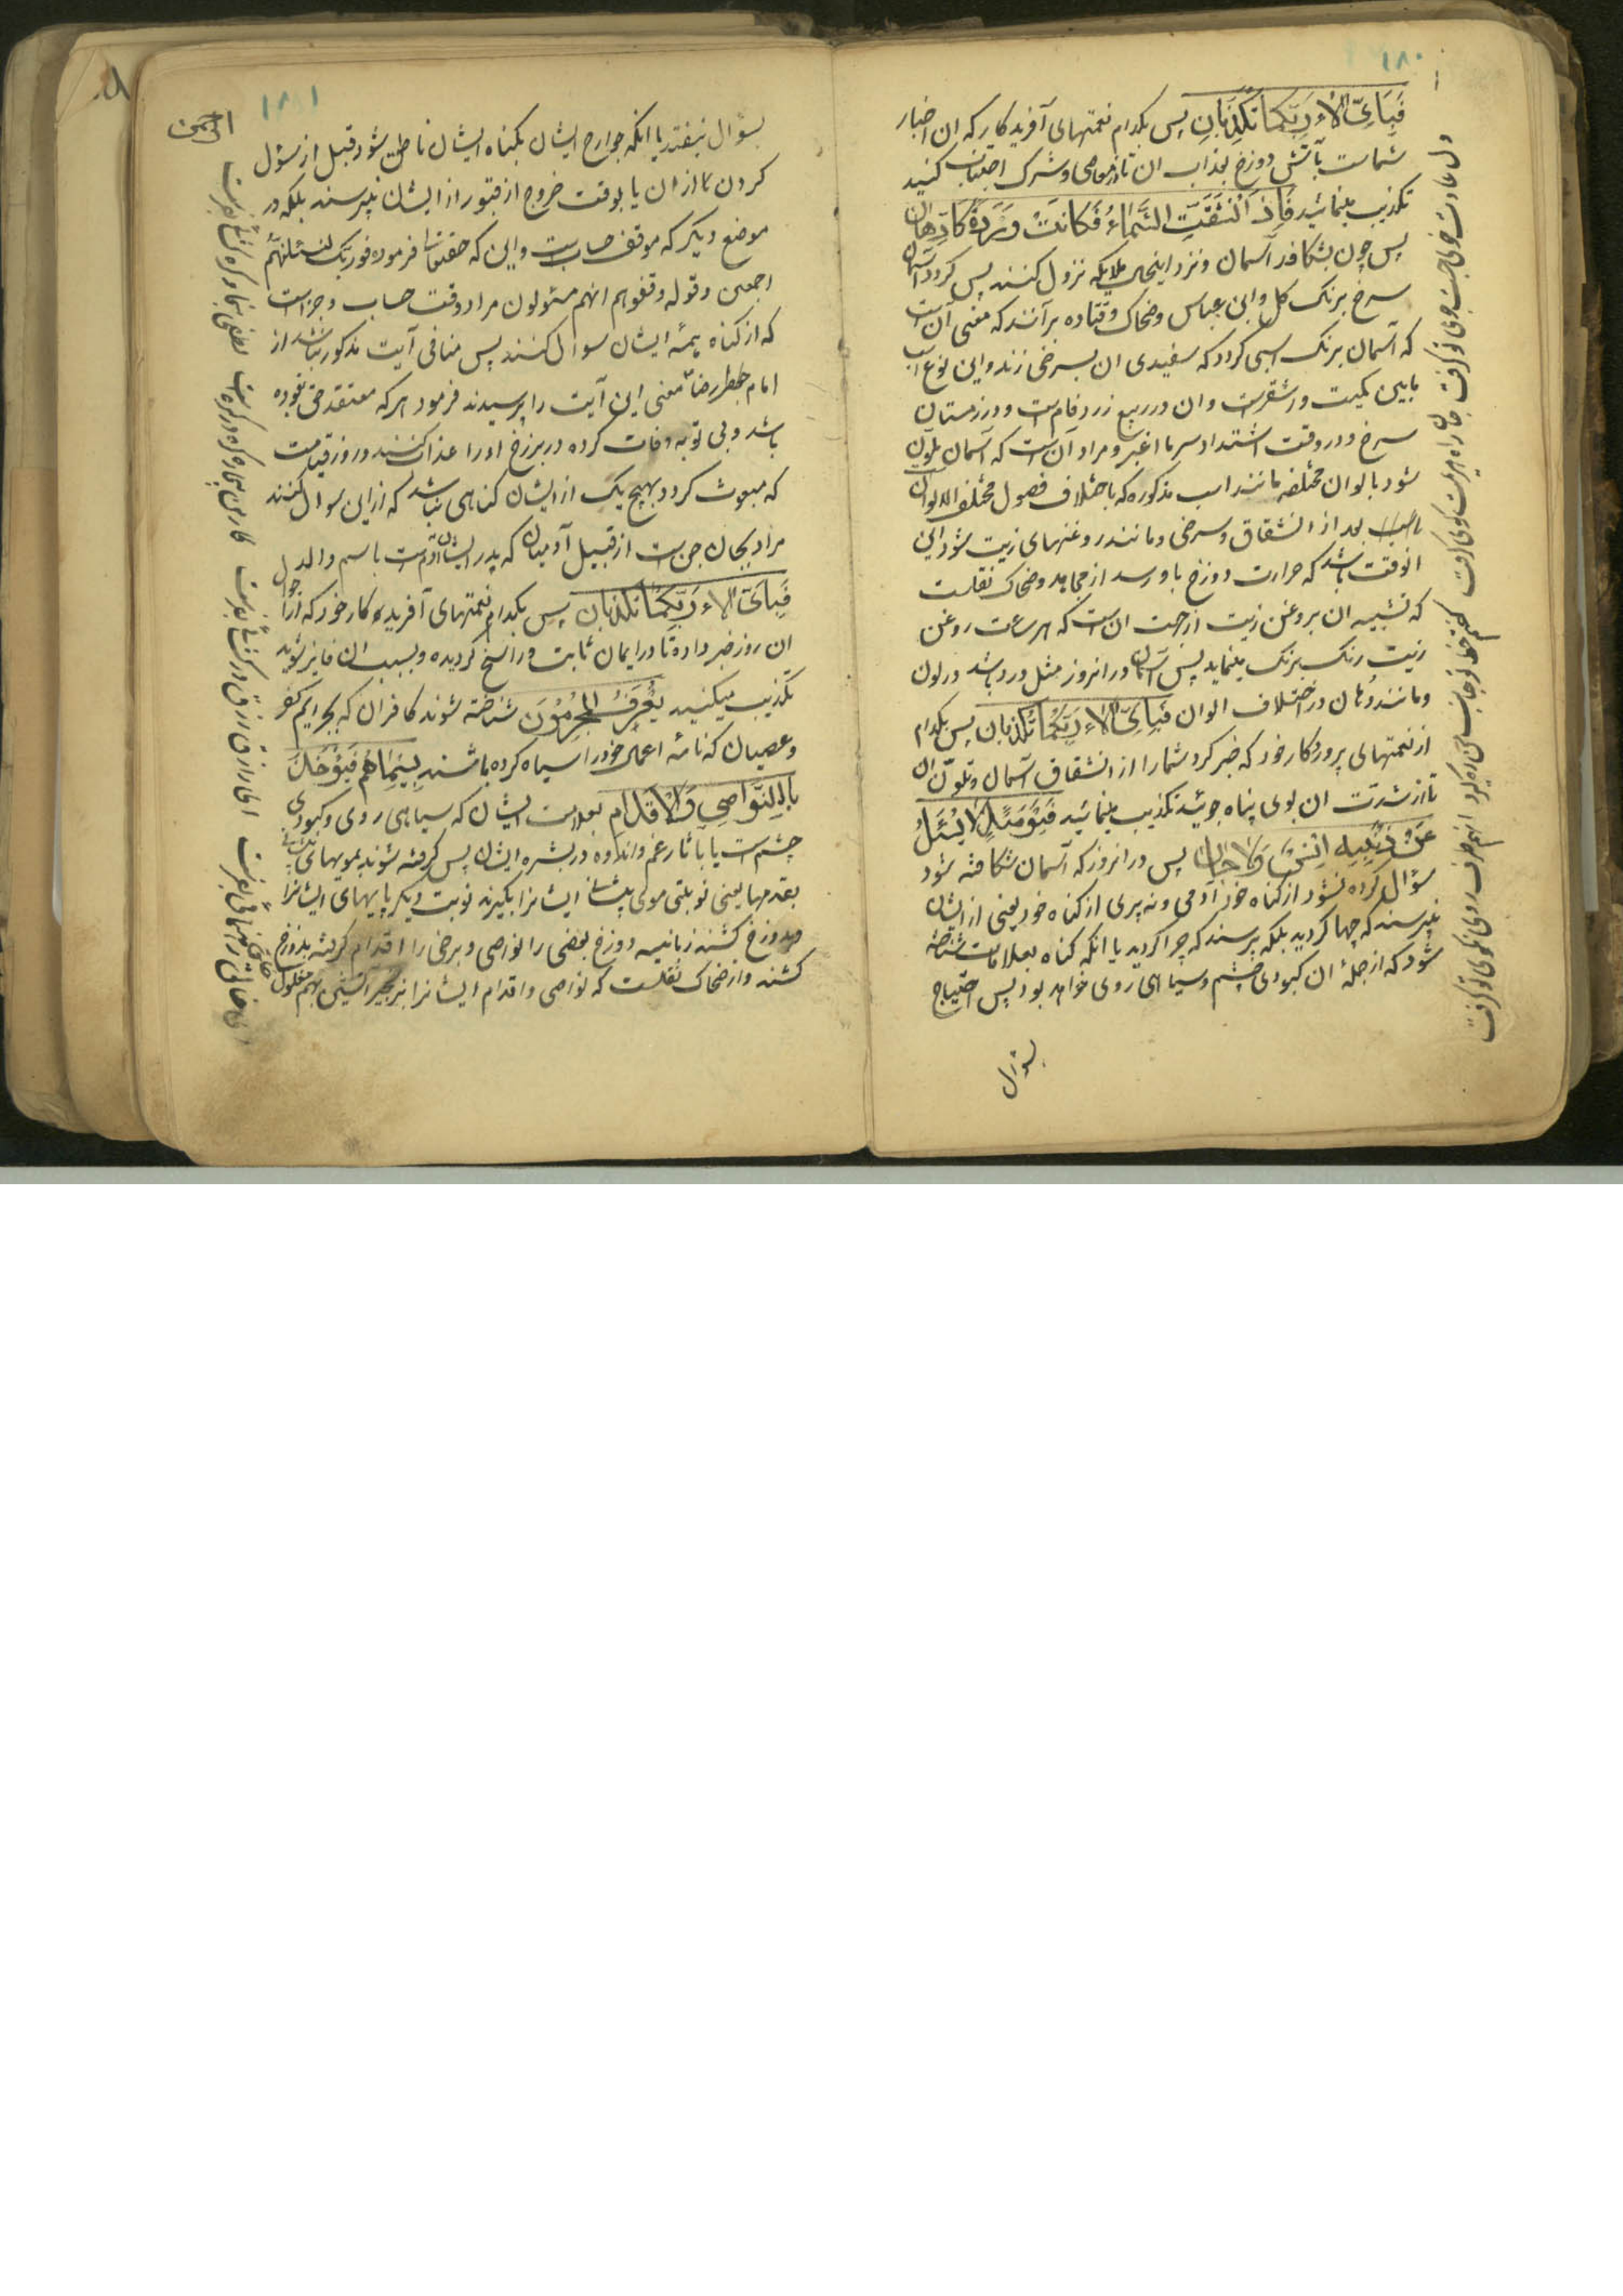 ۱۸۰
فَبِاَیِّ اٰلاءِ رَبِّکُمَا تُکَذِّبَانِ پس بکدام نعمتهای آفریدکار که ان اخبار
شماست بآتش دوزخ بعذاب ان تا از معاصی و شرک اجتناب کنید
تکذیب مینمائید فَاِذَا انْشَقَّتِ السَّمَاءُ فَکَانَتْ وَرْدَةً کَالدِّهَانِ
پس چون بشکافد آسمان و نزد اینحال ملایکه نزول کنند پس کردد آسمان
سرخ برنک کل و ابن عباس و ضحاک و قتاده برآنند که معنی آن است
که آسمان برنک اسبی کردد که سفیدی ان بسرخی زند و این نوع اسب
مابین کمیت و اشقر است و ان در ربیع زرد فام است و در زمستان
سرخ و در وقت اشتداد سرما اغبر و مراد آن است که آسمان ملون
شود بالوان مختلفه مانند اسب مذکوره که باختلاف فصول مختلف الالوان
باشد بعد از انشقاق و سرخی و مانند روغنهای زیت شود این
انوقت باشد که حرارت دوزخ باو رسد از مجاهد و ضحاک نقلست
که تشبیه ان بروغن زیت از جهت ان است که هر ساعت روغن
زیت رنک برنک مینماید پس آسمان در انروز مثل ورد باشد در لون
و مانند دهان در اختلاف الوان فَبِاَیِّ اٰلاءِ رَبِّکُمَا تُکَذِّبَانِ پس بکدام
از نعمتهای پروردکار خود که خبر کرد شما را از انشقاق آسمان و تلون ان
تا از شدت ان بوی پناه جوئید تکذیب مینمائید فَیَوْمَئِذٍ لَا یُسْئَلُ
عَنْ ذَنْبِهِ اِنْسٌ وَلَا جَانٌّ پس در انروز که آسمان شکافته شود
سؤال کرده نشود از کناه خود آدمی و نه پری از کناه خود یعنی از ایشان
نپرسند که چها کردید بلکه پرسند که چرا کردید یا انکه کناه بعلامات شناخته
شود که از جملهٔ ان کبودی چشم و سیاهی روی خواهد بود پس احتیاج
بسؤال
۱۸۱
بسؤال نیفتد یا انکه جوارح ایشان بکناه ایشان ناطق شود قبل از سؤال
کردن از ان یا بوقت خروج از قبور از ایشان نپرسند بلکه در
موضع دیکر که موقف حساب است و این که حقتعالی فرموده فوربک لنسئلنهم
اجمعین و قوله وقفوهم انهم مسئولون مراد وقت حساب و جزا است
که از کناه همهٔ ایشان سوال کنند پس منافی آیت مذکور نباشد از
امام رضا معنی این آیت را پرسیدند فرمود هر که معتقد حق بوده
باشد و بی توبه وفات کرده در برزخ او را عذاب کنند و روز قیامت
که مبعوث کردد بهیچ یک از ایشان کناهی نباشد که از این سوال کنند
مراد بجان جن است از قبیل آدمیان که پدر ایشان آدم است باسم والد
فَبِاَیِّ اٰلاءِ رَبِّکُمَا تُکَذِّبَانِ پس بکدام نعمتهای آفریدکار خود که از
ان روز خبر داده تا در ایمان ثابت و راسخ کردیده و بسبب ان فایز شوید
تکذیب میکنید یُعْرَفُ الْمُجْرِمُونَ شناخته شوند کافران که بجرایم کفر
و عصیان که نامهٔ اعمال خود را سیاه کرده باشند بِسِیْمَاهُمْ فَیُؤْخَذُ
بِالنَّوَاصِی وَالْاَقْدَامِ بعلامت ایشان که سیاهی روی و کبودی
چشم است یا بآثار غم و اندوه در بشره ایشان پس کرفته شوند بمویهای
بقدمها یعنی نوبتی موی پیشانی ایشانرا بکیرند نوبت دیکر پایهای ایشانرا
بدوزخ کشند زبانیه دوزخ بعضی را نواصی و برخی را اقدام کرفته بدوزخ
کشند و از ضحاک نقلست که نواصی و اقدام ایشانرا بزنجیر آتشین بهم مغلول